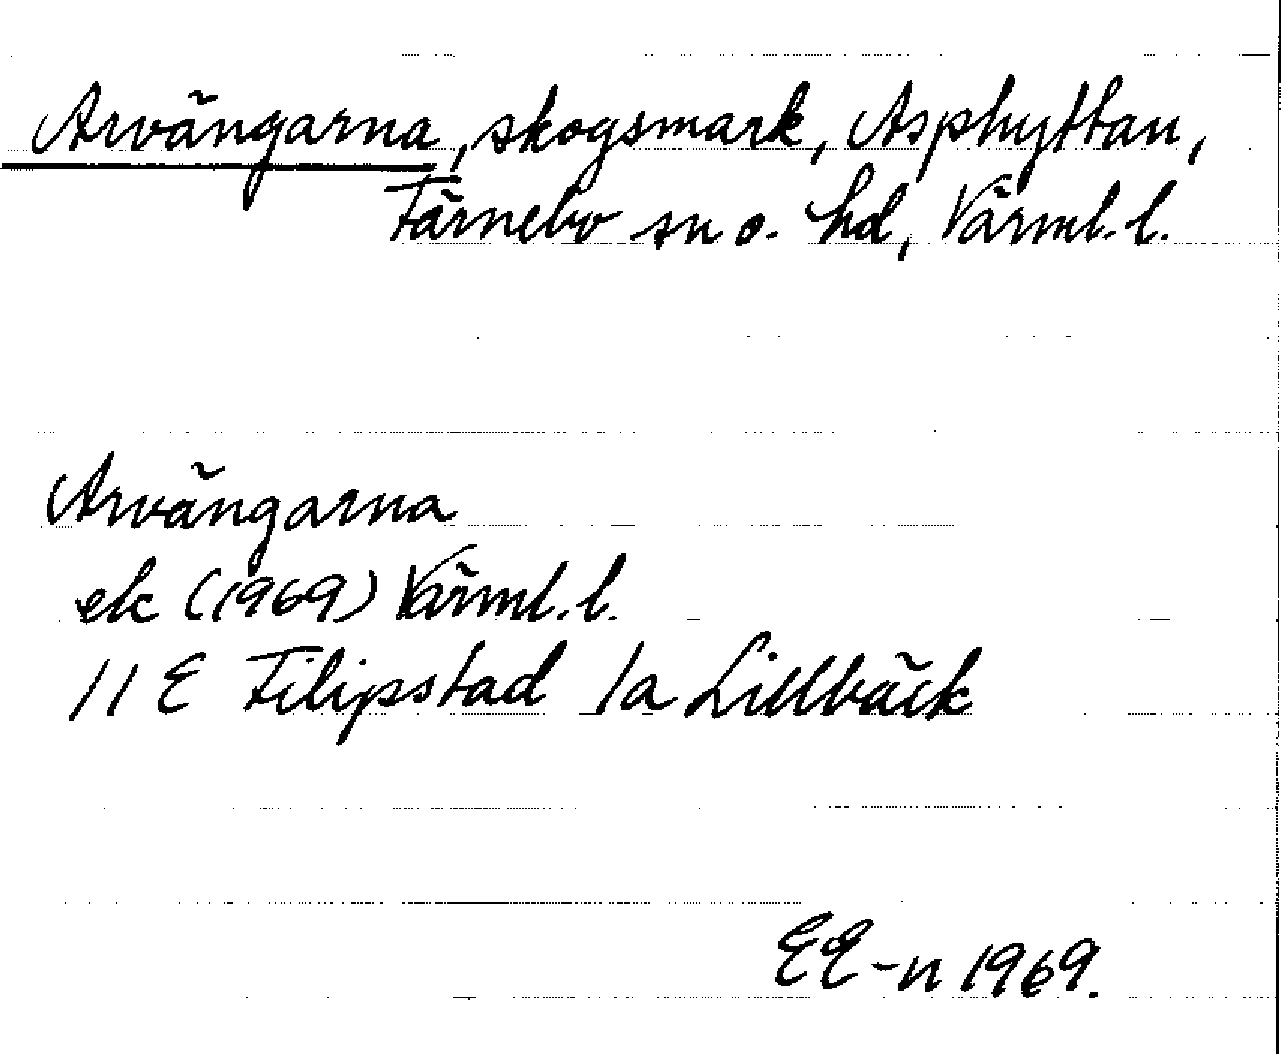 Arvängarna, skogsmark, Asphyttan,
Färnebo sn o. hd, Värml. l.
Arvängarna
ek (1969) Värml. l.
11 E Filipstad 1a Lillbäck
EE-n 1969.